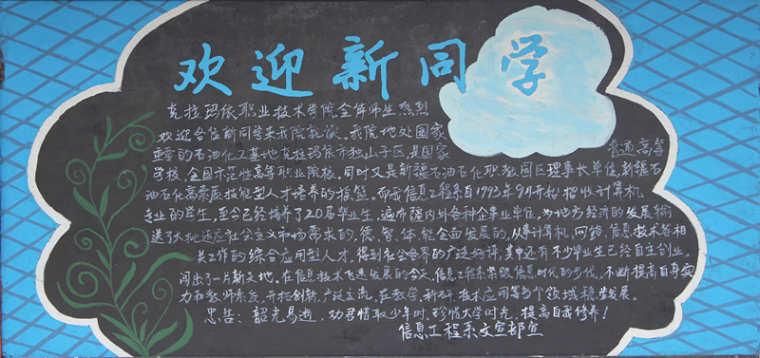 欢迎新同学
克拉玛依职业技术学院全体师生热烈
欢迎各位新同学来我院就读。我院地处国家
重要的石油化工基地克拉玛依市独山子区是国家普通高等
学校,全国示范性高等职业院校,同时又是新疆石油石化职教园区理事长单位,新疆石
油石化高素质技能型人才培养的摇篮。而我信息工程系自1993年9月开始招收计算机
专业的学生,至今已经培养了20届毕业生,遍布疆内外各种企事业单位,为地方经济的发展输
送了大批适应社会主义市场需求的,德、智、体、能全面发展的,从事计算机、网络、信息技术等相
关工作的综合应用型人才,得到社会各界的广泛好评,其中还有不少毕业生已经自主创业,
闯出了一片新天地。在信息技术飞速发展的今天,信息工程系紧跟信息时代的步伐,不断提高自身实
力和教师素质,开拓创新,广泛交流,在教学、科研、技术应用等各个领域稳步发展。
忠告:韶光易逝,劝君惜取少年时,珍惜大学时光,提高自我修养!
信息工程系文宣部宣